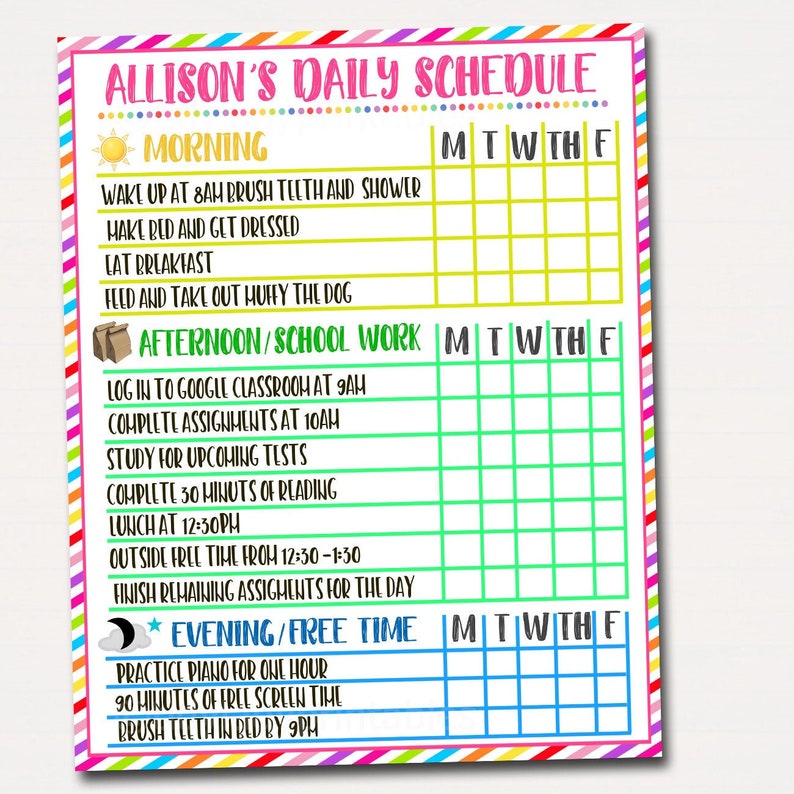 ALLISON'S DAILY SCHEDULE
MORNING M T W TH F
WAKE UP AT 8AM BRUSH TEETH AND SHOWER
MAKE BED AND GET DRESSED
EAT BREAKFAST
FEED AND TAKE OUT MUFFY THE DOG
AFTERNOON/SCHOOL WORK M T W TH F
LOG IN TO GOOGLE CLASSROOM AT 9AM
COMPLETE ASSIGNMENTS AT 10AM
STUDY FOR UPCOMING TESTS
COMPLETE 30 MINUTS OF READING
LUNCH AT 12:30PM
OUTSIDE FREE TIME FROM 12;30 -1:30
FINISH REMAINING ASSIGMENTS FOR THE DAY
EVENING/FREE TIME M T W TH F
PRACTICE PIANO FOR ONE HOUR
90 MINUTES OF FREE SCREEN TIME
BRUSH TEETH IN BED BY 9PM